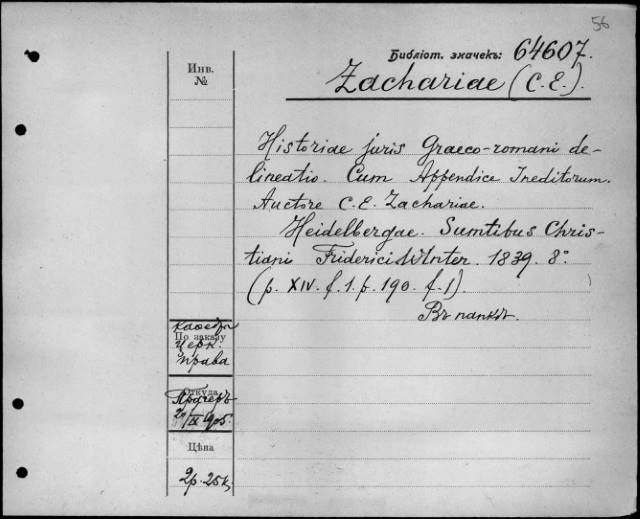 56
Библіот. значекъ: 64607.
Zachariae (C. E.).
Инв.
№
Historiae juris Graeco-romani de-
lineatio. Cum Appendice Ineditorum.
Auctore C. E. Zachariae.
Heidelbergae. Sumtibus Chris-
tiani Friderici Winter. 1839. 8°.
(p. XIV. f. 1. p. 190. f. 1).
Въ папкѣ.
Каѳедра
По заказу
Церк.
права
Откуда
29/IX 1905.
Цѣна
2р. 25к.